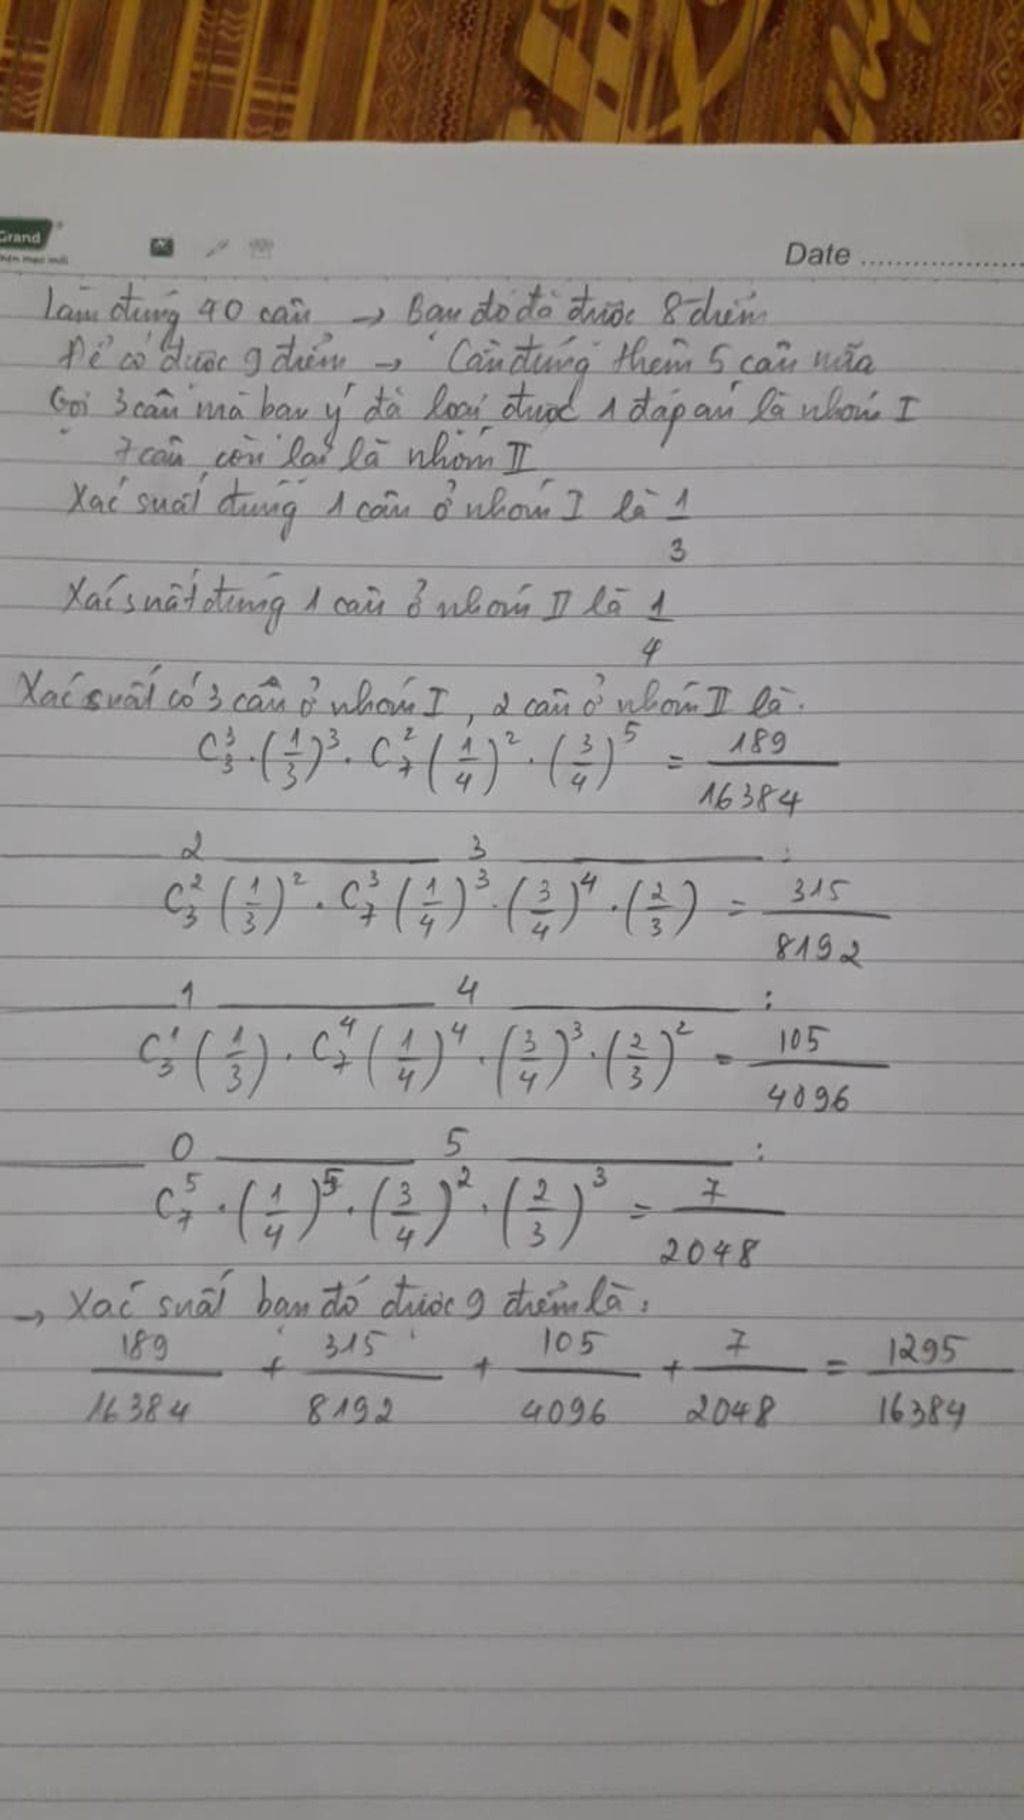 Grand
Date
Làm đúng 40 câu → Bạn đó đã được 8 điểm
Để có được 9 điểm → Cần đúng thêm 5 câu nữa
Gọi 3 câu mà bạn ý đã loại được 1 đáp án là nhóm I
7 câu còn lại là nhóm II
Xác suất đúng 1 câu ở nhóm I là 1/3
Xác suất đúng 1 câu ở nhóm II là 1/4
Xác suất có 3 câu ở nhóm I, 2 câu ở nhóm II là:
C₃³ · (1/3)³ · C₇² (1/4)² · (3/4)⁵ = 189/16384
2 3 :
C₃² (1/3)² · C₇³ (1/4)³ · (3/4)⁴ · (2/3) = 315/8192
1 4 :
C₃¹ (1/3) · C₇⁴ (1/4)⁴ · (3/4)³ · (2/3)² = 105/4096
0 5 :
C₇⁵ · (1/4)⁵ · (3/4)² · (2/3)³ = 7/2048
→ Xác suất bạn đó được 9 điểm là:
189/16384 + 315/8192 + 105/4096 + 7/2048 = 1295/16384